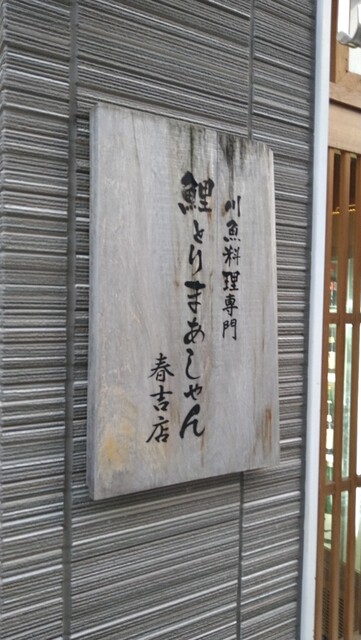 川魚料理専門
鯉とりまあしゃん
春吉店